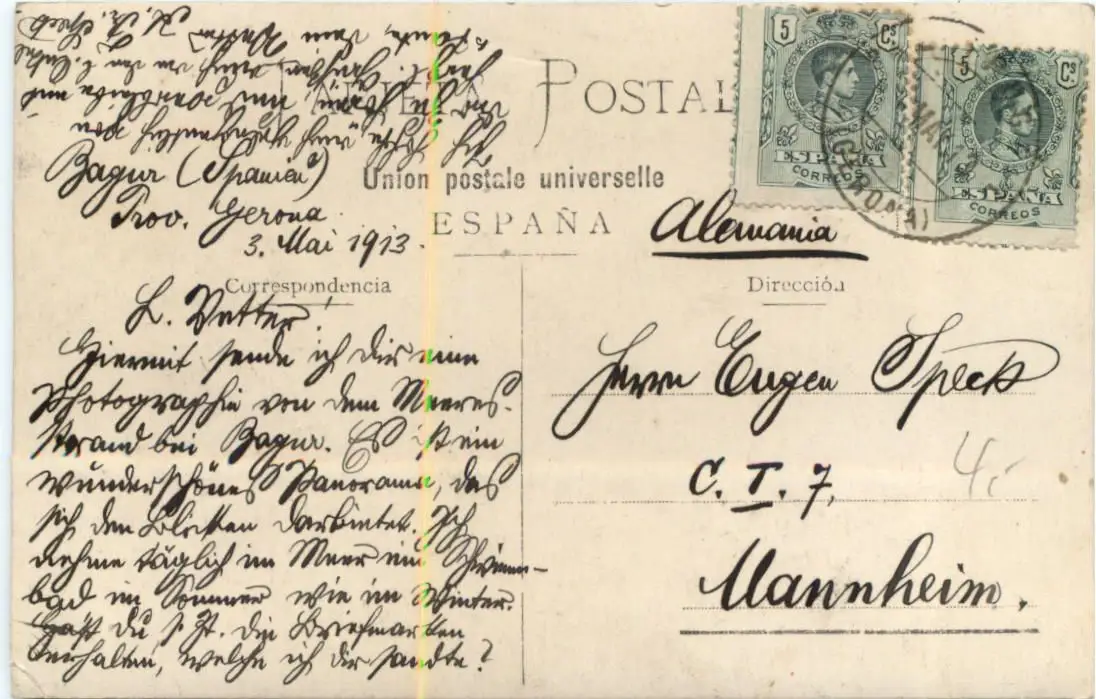 TARJETA POSTAL
Union postale universelle
ESPAÑA
5 Cs
ESPAÑA
CORREOS
5 Cs
ESPAÑA
CORREOS
(GERONA)
Bagur (Spanien)
Prov. Gerona.
3. Mai 1913.
Alemania
Correspondencia
L. Vetter!
Hiermit sende ich Dir eine
Photographie von dem Meeres-
strand bei Bagur. Es ist ein
wunderschönes Panorama, das
sich den Blicken darbietet. Ich
nehme täglich im Meer ein Schwimm-
bad im Sommer wie im Winter.
Hast Du s. Zt. die Briefmarken
erhalten, welche ich dir sandte?
Dirección
Herrn Eugen Speck
C. T. 7,
Mannheim.
4,-